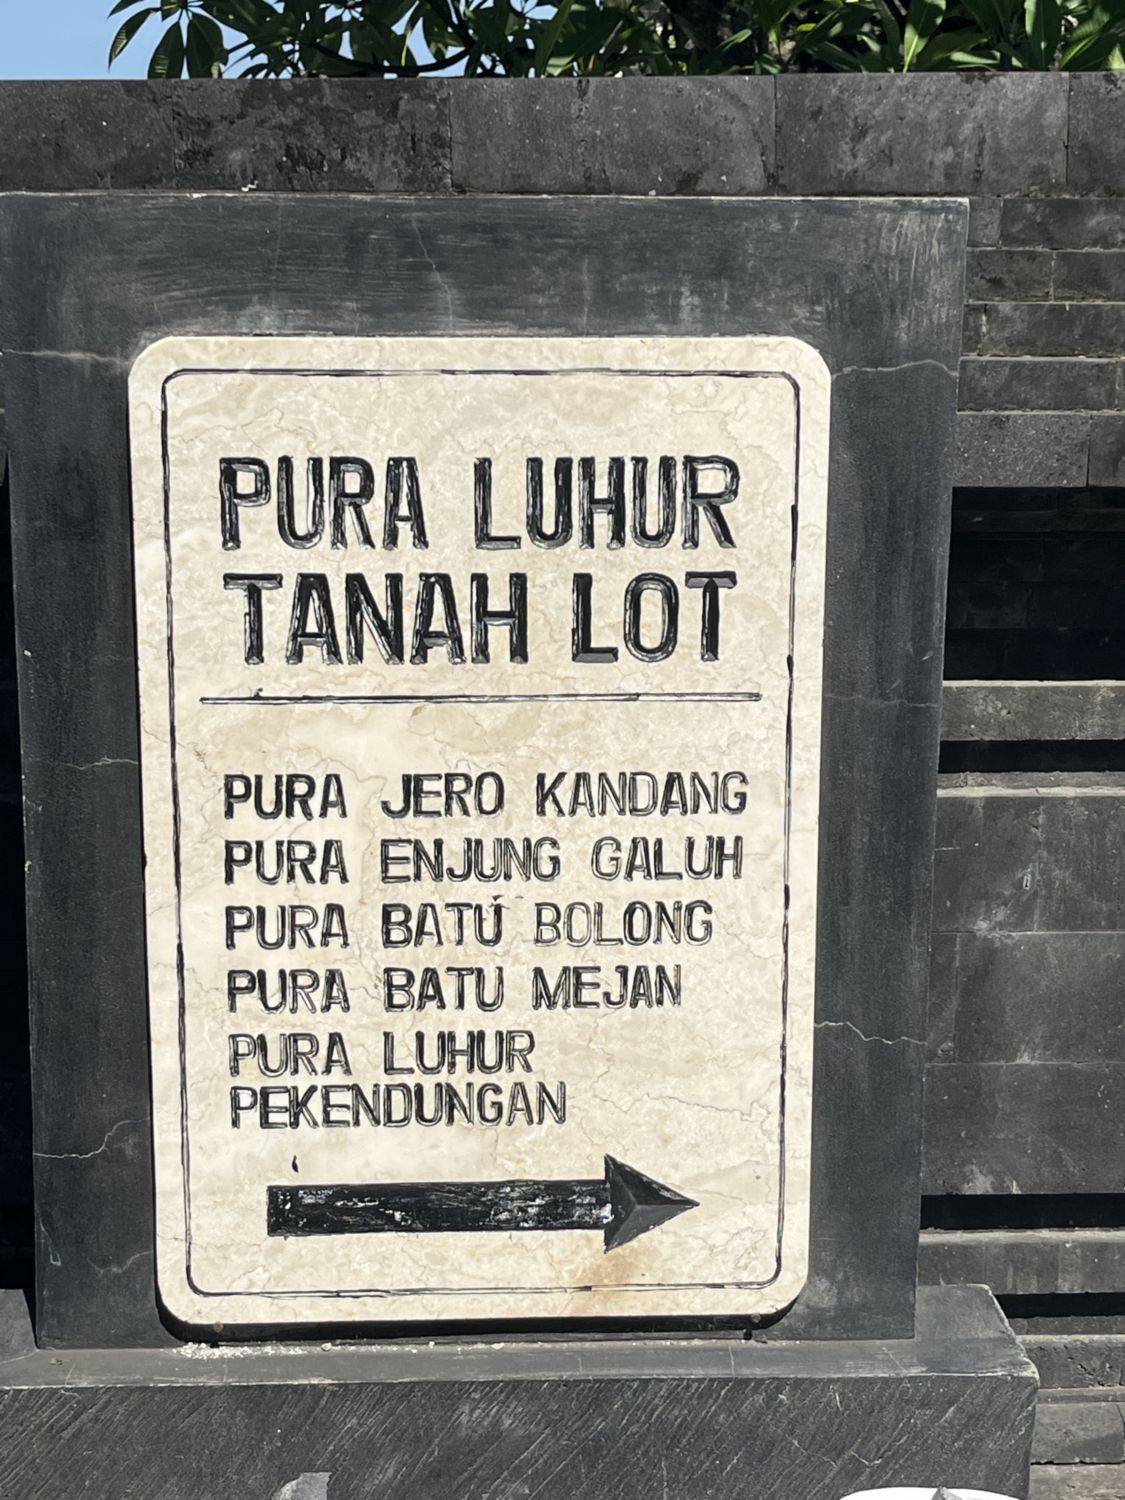 PURA LUHUR
TANAH LOT
PURA JERO KANDANG
PURA ENJUNG GALUH
PURA BATU BOLONG
PURA BATU MEJAN
PURA LUHUR
PEKENDUNGAN